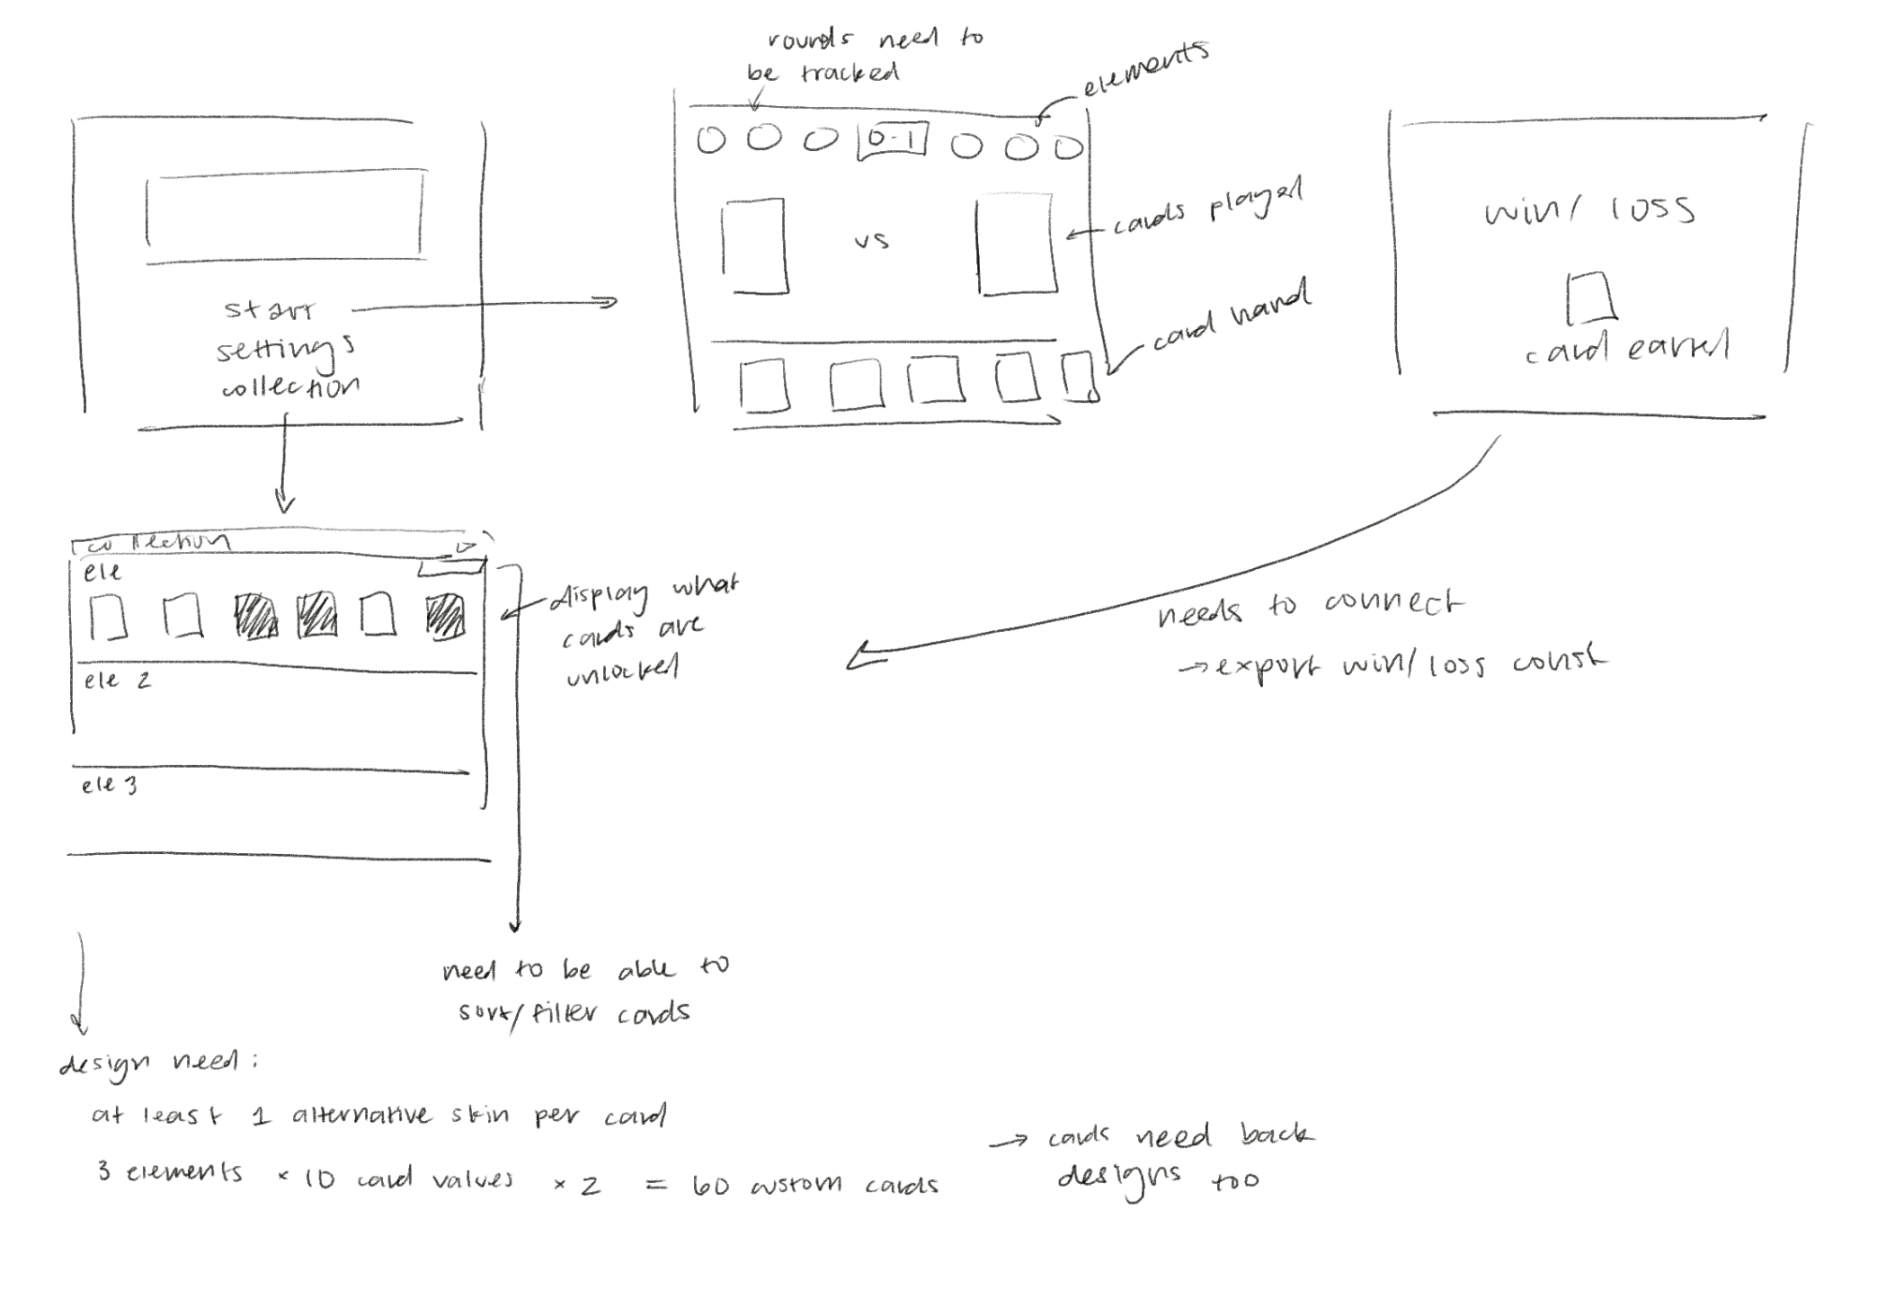 rounds need to
be tracked
elements
0-1
vs
cards played
card hand
win/loss
card earned
start
settings
collection
collection
ele
ele 2
ele 3
display what
cards are
unlocked
needs to connect
→export win/loss const
need to be able to
sort/filter cards
design need:
at least 1 alternative skin per card
3 elements × 10 card values × 2 = 60 custom cards
→ cards need back
designs too